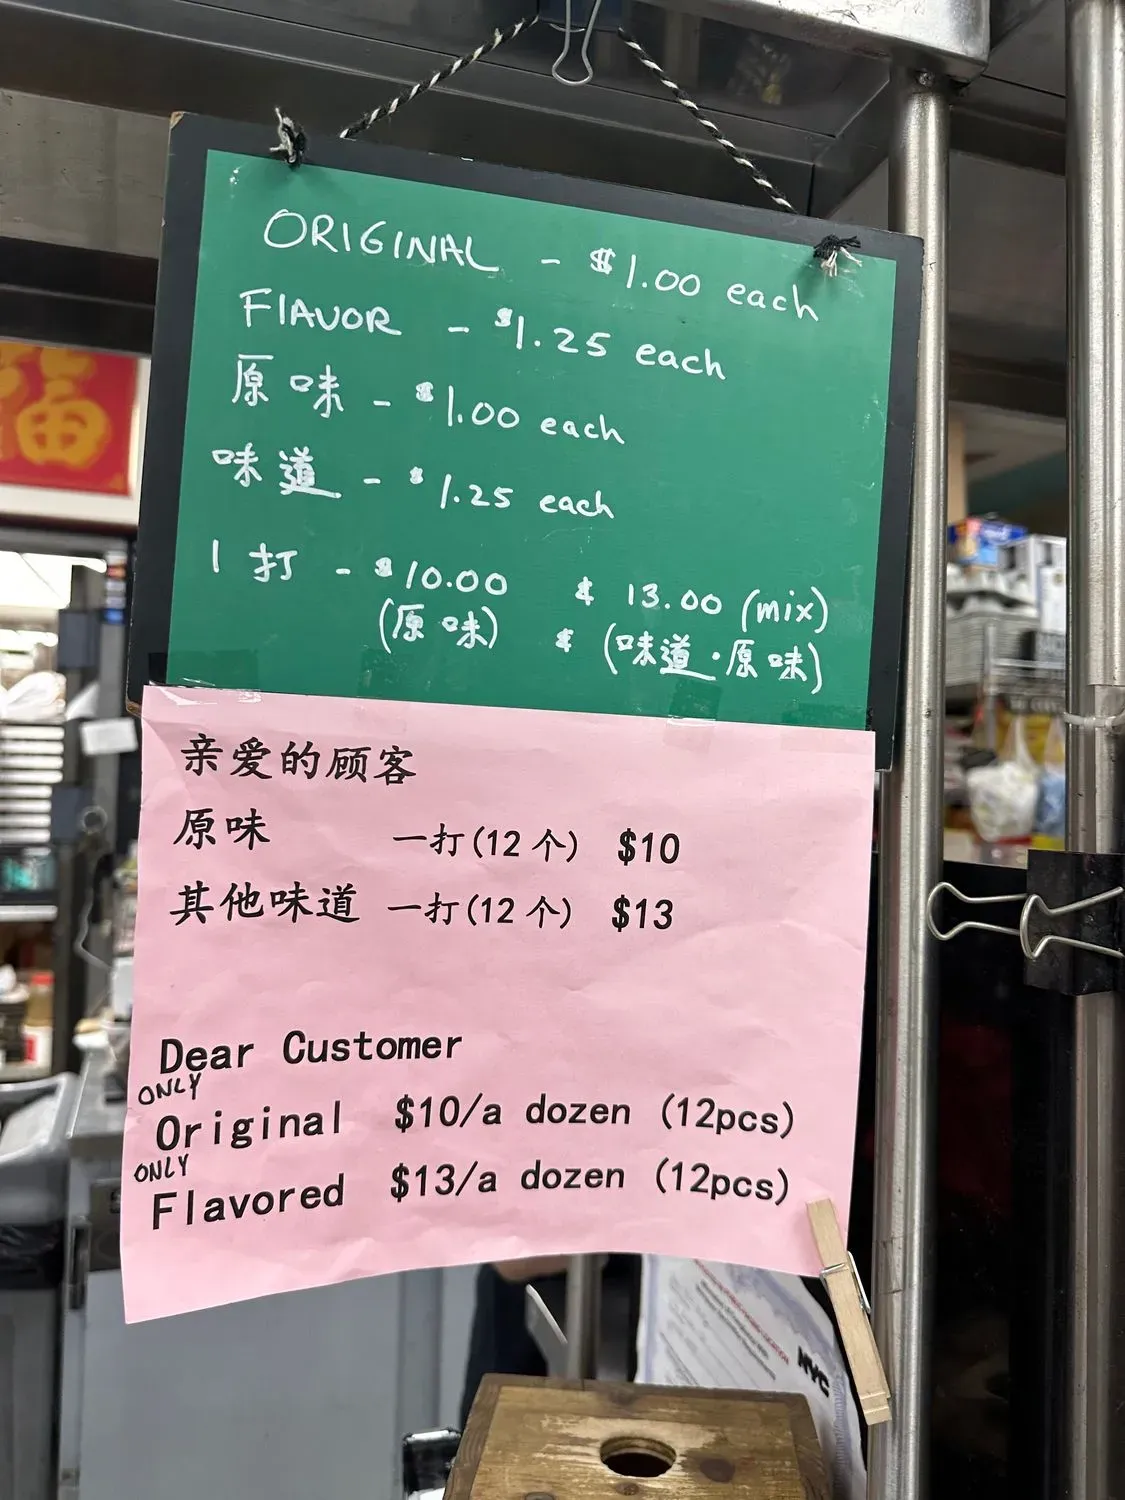 ORIGINAL - $1.00 each
FlAVOR - $1.25 each
原味 - $1.00 each
味道 - $1.25 each
1 打 - $10.00 $ 13.00 (mix)
(原味) $ (味道·原味)
福
亲爱的顾客
原味 一打(12 个) $10
其他味道 一打(12 个) $13
Dear Customer
ONLY
Original $10/a dozen (12pcs)
ONLY
Flavored $13/a dozen (12pcs)
NYC